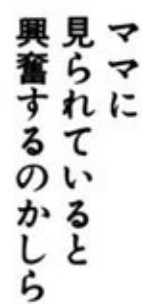 ママに
見られていると
興奮するのかしら